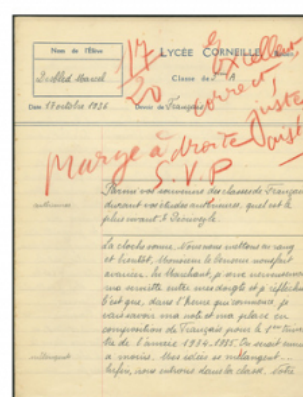 Nom de l'Élève
LYCÉE CORNEILLE
17
20
Excellent
correct,
juste
Classe de A
Date 17 octobre 1936 Devoir de Français
Marge à droite
S.V.P
Parmi vos souvenirs des classes de Français
durant vos études antérieures, quel est le
plus vivant?
La cloche sonne. Nous nous mettons en rang
et bientôt, Monsieur le Censeur nous fait
avancer. En marchant, je serre nerveusement
ma serviette entre mes doigts et je réfléchis
C'est que, dans l'heure qui commence, je
vais savoir ma note et ma place en
composition de Français pour le 1er trimes
tre de l'année 1934-1935. On serait ému
à moins. Mes idées se mélangent
mélangent
Enfin, nous entrons dans la classe. Votre